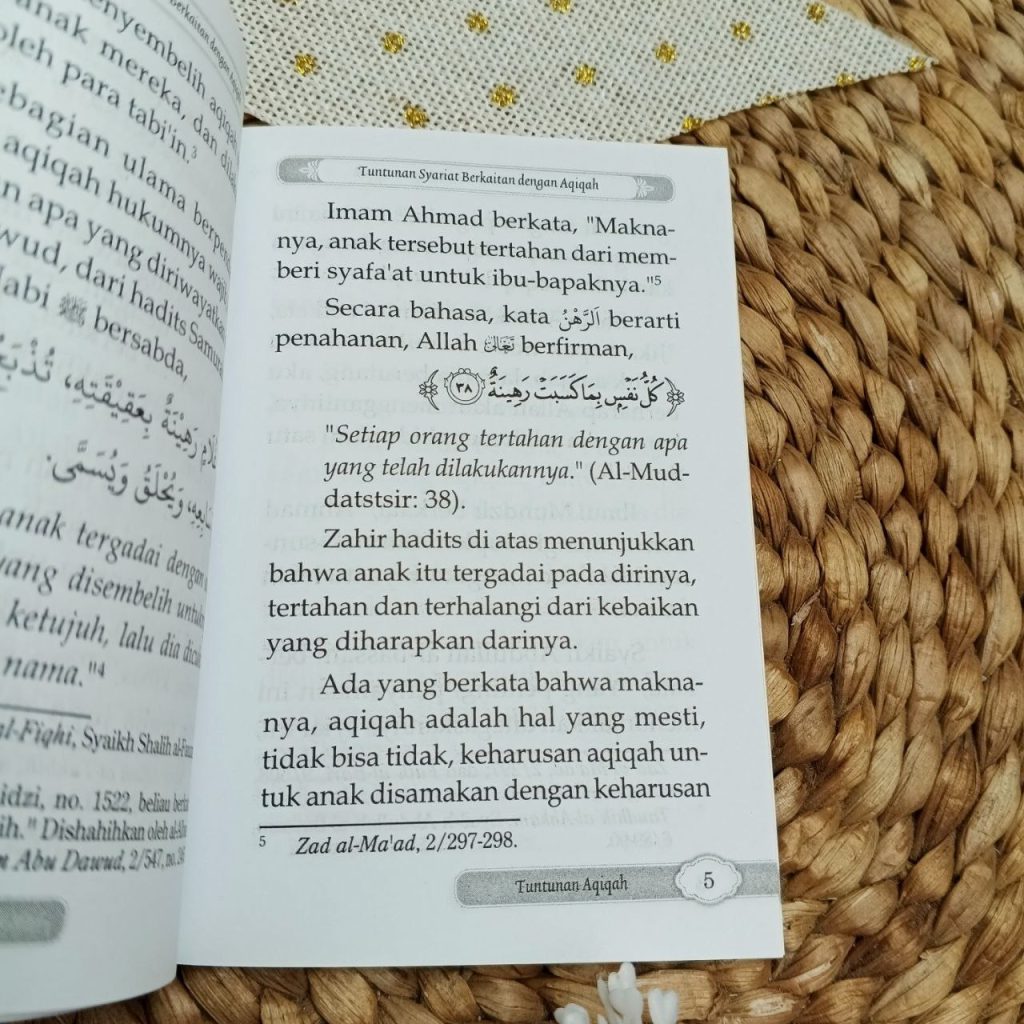 Berkaitan dengan
enyembelih aqiqah
anak mereka, dan
oleh para tabi'in.³
ebagian ulama
aqiqah hukumnya
n apa yang diriwayatkan
wud, dari hadits
Nabi ﷺ bersabda,
رَهِيْنَةٌ بِعَقِيْقَتِهِ،
وَيُحْلَقُ وَيُسَمَّى.
anak tergadai dengan
yang disembelih
ketujuh, lalu dia
nama."⁴
al-Fiqhi, Syaikh Shalih
no. 1522, beliau
ih." Dishahihkan oleh
Abu Dawud, 2/547,
Tuntunan Syariat Berkaitan dengan Aqiqah
Imam Ahmad berkata, "Makna-
nya, anak tersebut tertahan dari mem-
beri syafa'at untuk ibu-bapaknya."⁵
Secara bahasa, kata اَلرَّهْنُ berarti
penahanan, Allah تَعَالَى berfirman,
﴿كُلُّ نَفْسٍۭ بِمَا كَسَبَتْ رَهِينَةٌ ٣٨﴾
"Setiap orang tertahan dengan apa
yang telah dilakukannya." (Al-Mud-
datstsir: 38).
Zahir hadits di atas menunjukkan
bahwa anak itu tergadai pada dirinya,
tertahan dan terhalangi dari kebaikan
yang diharapkan darinya.
Ada yang berkata bahwa makna-
nya, aqiqah adalah hal yang mesti,
tidak bisa tidak, keharusan aqiqah un-
tuk anak disamakan dengan keharusan
5 Zad al-Ma'ad, 2/297-298.
Tuntunan Aqiqah 5